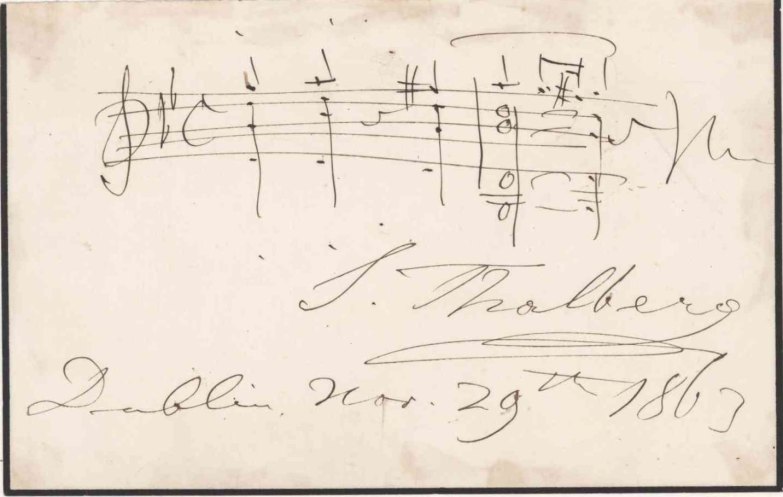 S. Thalberg
Dublin, Nov. 29th 1863